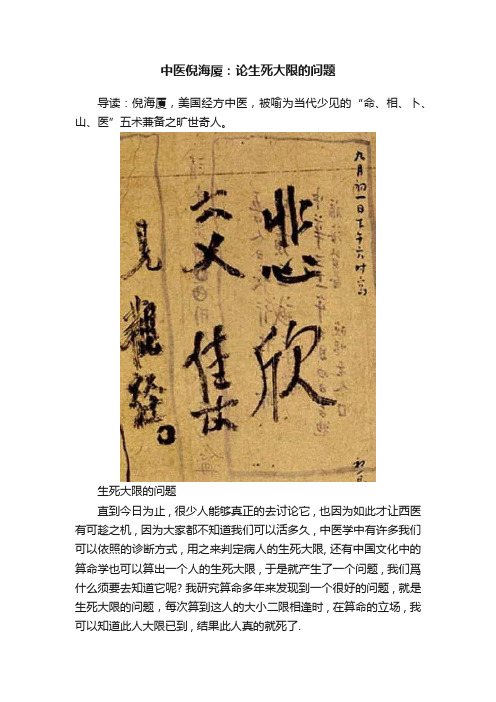 中医倪海厦：论生死大限的问题
导读：倪海廈，美国经方中医，被喻为当代少见的“命、相、卜、
山、医”五术兼备之旷世奇人。
九月初一日下午六时写
悲欣
交集
見觀經。
生死大限的问题
直到今日为止，很少人能够真正的去讨论它，也因为如此才让西医
有可趁之机，因为大家都不知道我们可以活多久，中医学中有许多我们
可以依照的诊断方式，用之来判定病人的生死大限，还有中国文化中的
算命学也可以算出一个人的生死大限，于是就产生了一个问题，我们爲
什么须要去知道它呢? 我研究算命多年来发现到一个很好的问题，就是
生死大限的问题，每次算到这人的大小二限相逢时，在算命的立场，我
可以知道此人大限已到，结果此人真的就死了.